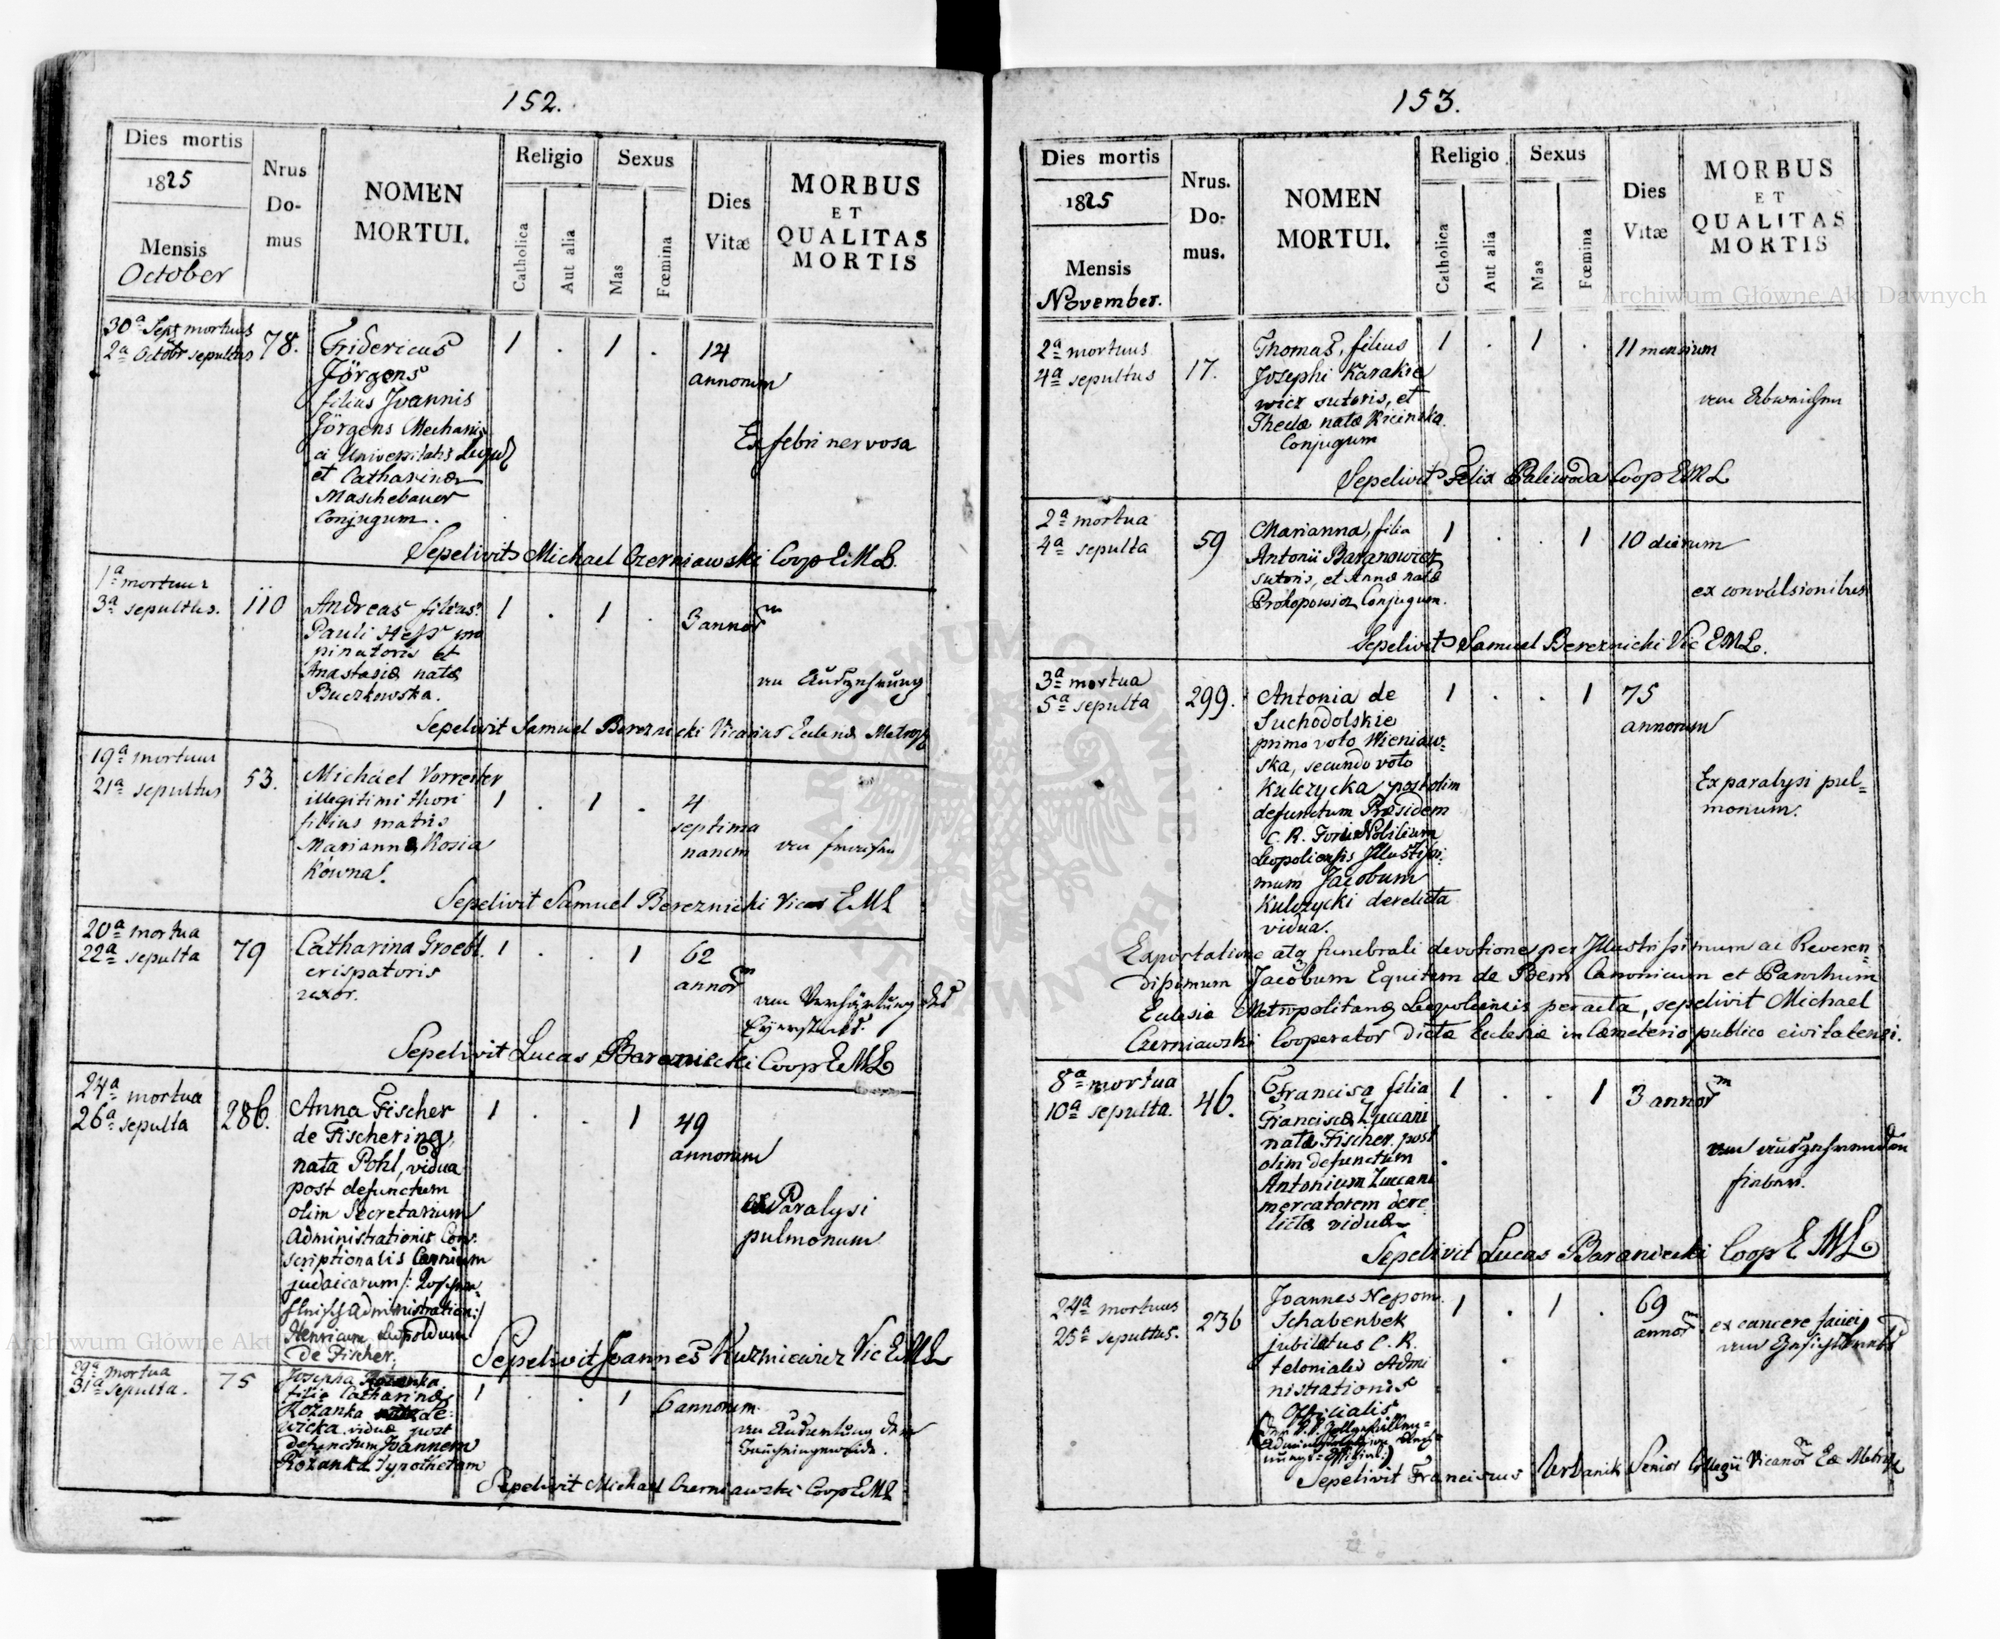 152.
Dies mortis
1825
Mensis
October
Nrus
Do-
mus
NOMEN
MORTUI.
Religio
Catholica
Aut alia
Sexus
Mas
Fœmina
Dies
Vitæ
MORBUS
ET
QUALITAS
MORTIS
30a Sept mortuus
2a Octobr sepultus
78.
Fridericus
Jörgens
filius Joannis
Jörgens Mechani,
ci Universitatis
et Catharinæ
Maschebauer
Conjugum.
1 . 1 .
14
annorum
Ex febri nervosa
Sepelivit Michael Czerniawski Coop E.M.L.
1a mortuus
3a sepultus.
110
Andreas filius
Pauli Hess pro
pinatoris et
Anastasiæ natæ
Buczkowska.
1 . 1 .
3 annorm
von Auszehrung
Sepelivit Samuel Bereznicki Vicarius Eccles Metrop
19a mortuus
21a sepultus
53.
Michael Vorreiter
illegitimi thori
filius matris
Mariannæ Kosia
kowna.
1 . 1 .
4
septima
nanem
von fraisen
Sepelivit Samuel Bereznicki Vicar E M L
20a mortua
22a sepulta
79
Catharina Groebl.
crispatoris
uxor.
1 . . 1
62
annorm
von Verhärtung des
Eyerstocks.
Sepelivit Lucas Baraniecki Coop E M L
24a mortua
26a sepulta
286.
Anna Fischer
de Fischering,
nata Pohl, vidua
post defunctum
olim Secretarium
Administrationis Con,
scriptionalis Carnium
judaicarum /:
Administration:/
Henricum Leopoldum
de Fischer.
1 . . 1
49
annorum
ex Paralysi
pulmonum
Sepelivit Joannes Kuzniewicz Vic E M L
29a mortua
31a sepulta.
75
Josepha Rozanka
filia Catharinæ
Rozanka de:
wicka viduæ post
defunctum Joannem
Rozanka Typothetam
1 . . 1
6 annorum
von Ausartung der
Sepelivit Michael Czerniawski Coop E M L
153.
Dies mortis
1825
Mensis
November.
Nrus.
Do-
mus.
NOMEN
MORTUI.
Religio
Catholica
Aut alia
Sexus
Mas
Fœmina
Dies
Vitæ
MORBUS
ET
QUALITAS
MORTIS
2a mortuus
4a sepultus
17.
Thomas, filius
Josephi Karakie
wicz sutoris, et
Theclæ natæ Kicinska.
Conjugum
1 . 1 .
11 mensium
vom Abweichen
Sepelivit Felix Paliwoda Coop E M L
2a mortua
4a sepulta
59
Marianna, filia
Antonii Baranowicz
sutoris, et Annæ natæ
Prokopowicz Conjugum.
1 . . 1
10 dierum
ex convulsionibus
Sepelivit Samuel Bereznicki Vic E M L.
3a mortua
5a sepulta
299.
Antonia de
Suchodolskie
primo voto Wieniaw-
ska, secundo voto
Kulczycka, post olim
defunctum Præsidem
C. R. Fori Nobilium
Leopoliensis Illustrissi,
mum Jacobum
Kulczycki derelicta
vidua.
1 . . 1
75
annorum
Ex paralysi pul-
monum.
Exportatione atq funebrali devotione per Illustrissimum ac Reveren-
dissimum Jacobum Equitem de Bem Canonicum et Parochum
Eclesiæ Metropolitanæ Leopoliensis peracta, sepelivit Michael
Czerniawski Cooperator dictæ Eclesiæ in Cæmeterio publico civitatensi.
8a mortua
10a sepulta.
46.
Francisca filia
Franciscæ Zuccani
natæ Fischer, post
olim defunctum
Antonium Zuccani
mercatorem dere
lictæ viduæ
1 . . 1
3 annorm
vom auszehrenden
fieber.
Sepelivit Lucas Baraniecki Coop E M L
24a mortuus
25a sepultus.
236
Joannes Nepom.
Schabenbek
jubilatus C. R.
telonialis Admi
nistrationis
Officialis
1 . 1 .
69
annorm
ex cancere faciei,
von Gesichtskrebs
Sepelivit Franciscus Urbanik Senior Collegii Vicariorm Ecc Metrop
Archiwum Główne Akt Dawnych